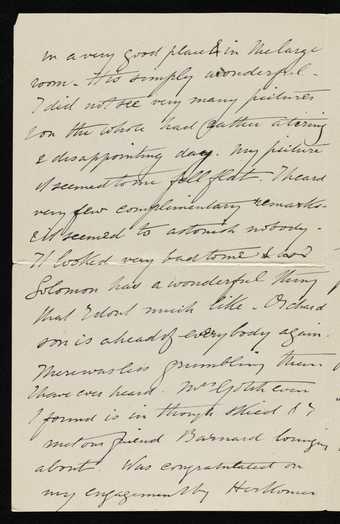 in a very good place & in the large
room. It is simply wonderful.
I did not see very many pictures
& on the whole had rather a tiring
& disappointing day. My picture
it seemed to me fell flat. I heard
very few complimentary remarks
& it seemed to astonish nobody.
It looked very bad to me &
Solomon has a wonderful thing
that I dont much like. Orchard
son is ahead of everybody again.
There was less grumbling than
I have ever heard. Mrs even
I found is in though skied & I
met our friend Barnard lounging
about. Was congratulated on
my engagement by Herkomer